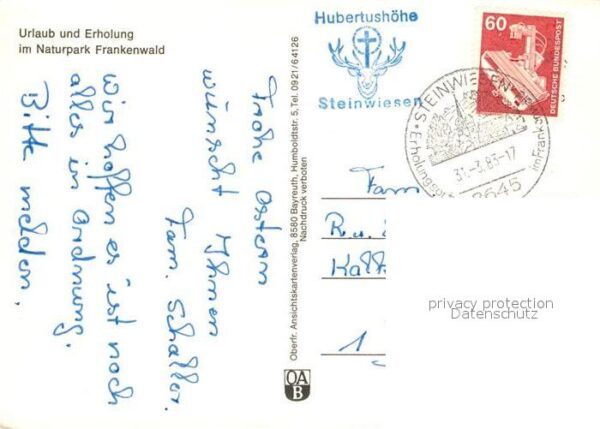 Urlaub und Erholung
im Naturpark Frankenwald
Frohe Ostern
wünscht Ihnen
Fam. Schaller.
Wir hoffen es ist noch
alles in Ordnung.
Bitte melden.
Oberfr. Ansichtskartenverlag, 8580 Bayreuth, Humboldtstr. 5, Tel. 0921/64126
Nachdruck verboten
OA
B
Hubertushöhe
Steinwiesen
60
DEUTSCHE BUNDESPOST
STEINWIESEN
31.-3.83-17
8645
Erholungs
im Frank
Fam
R.u.
Kalt
1
privacy protection
Datenschutz